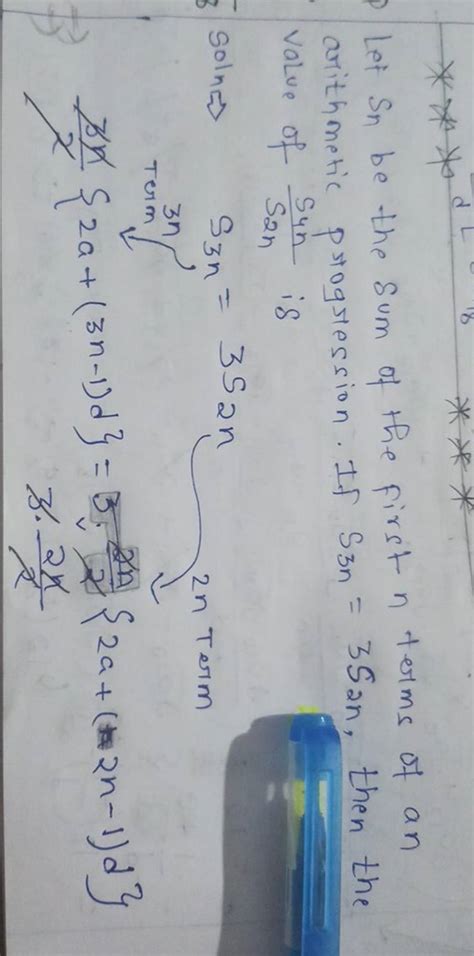 Let Sn be the sum of the first n terms of an
arithmetic progression. If S3n = 3S2n, then the
value of S4n/S2n is
Soln⇒ S3n = 3S2n
3n Term
2n Term
3n/2 {2a+(3n-1)d} = 3·2n/2 {2a+(2n-1)d}
3·2n/2